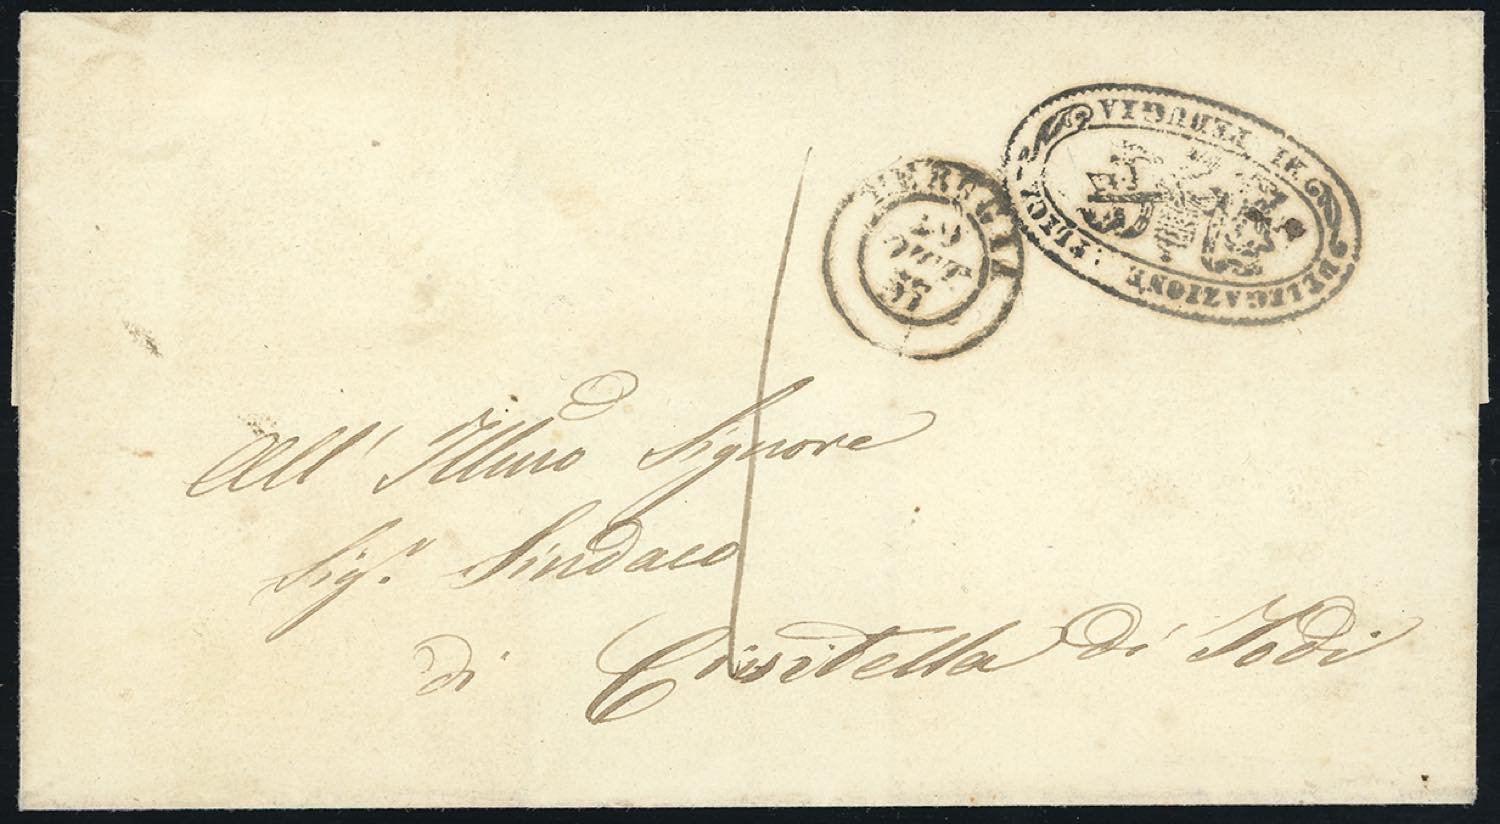 DELEGAZIONE APLICA
DI PERUGIA
PERUGIA
OTT
57
All' Illmo Signore
Sigr. Sindaco
di Civitella di Todi